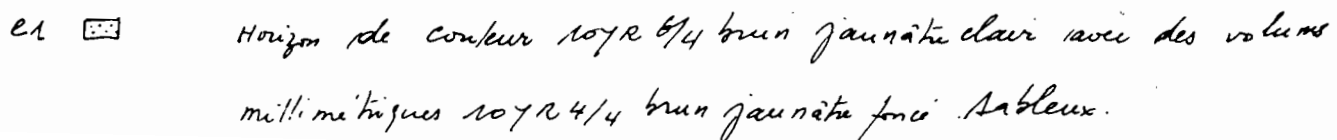 e1 Horizon de couleur 10YR 6/4 brun jaunâtre clair avec des volumes
millimétriques 10YR 4/4 brun jaunâtre foncé. Sableux.